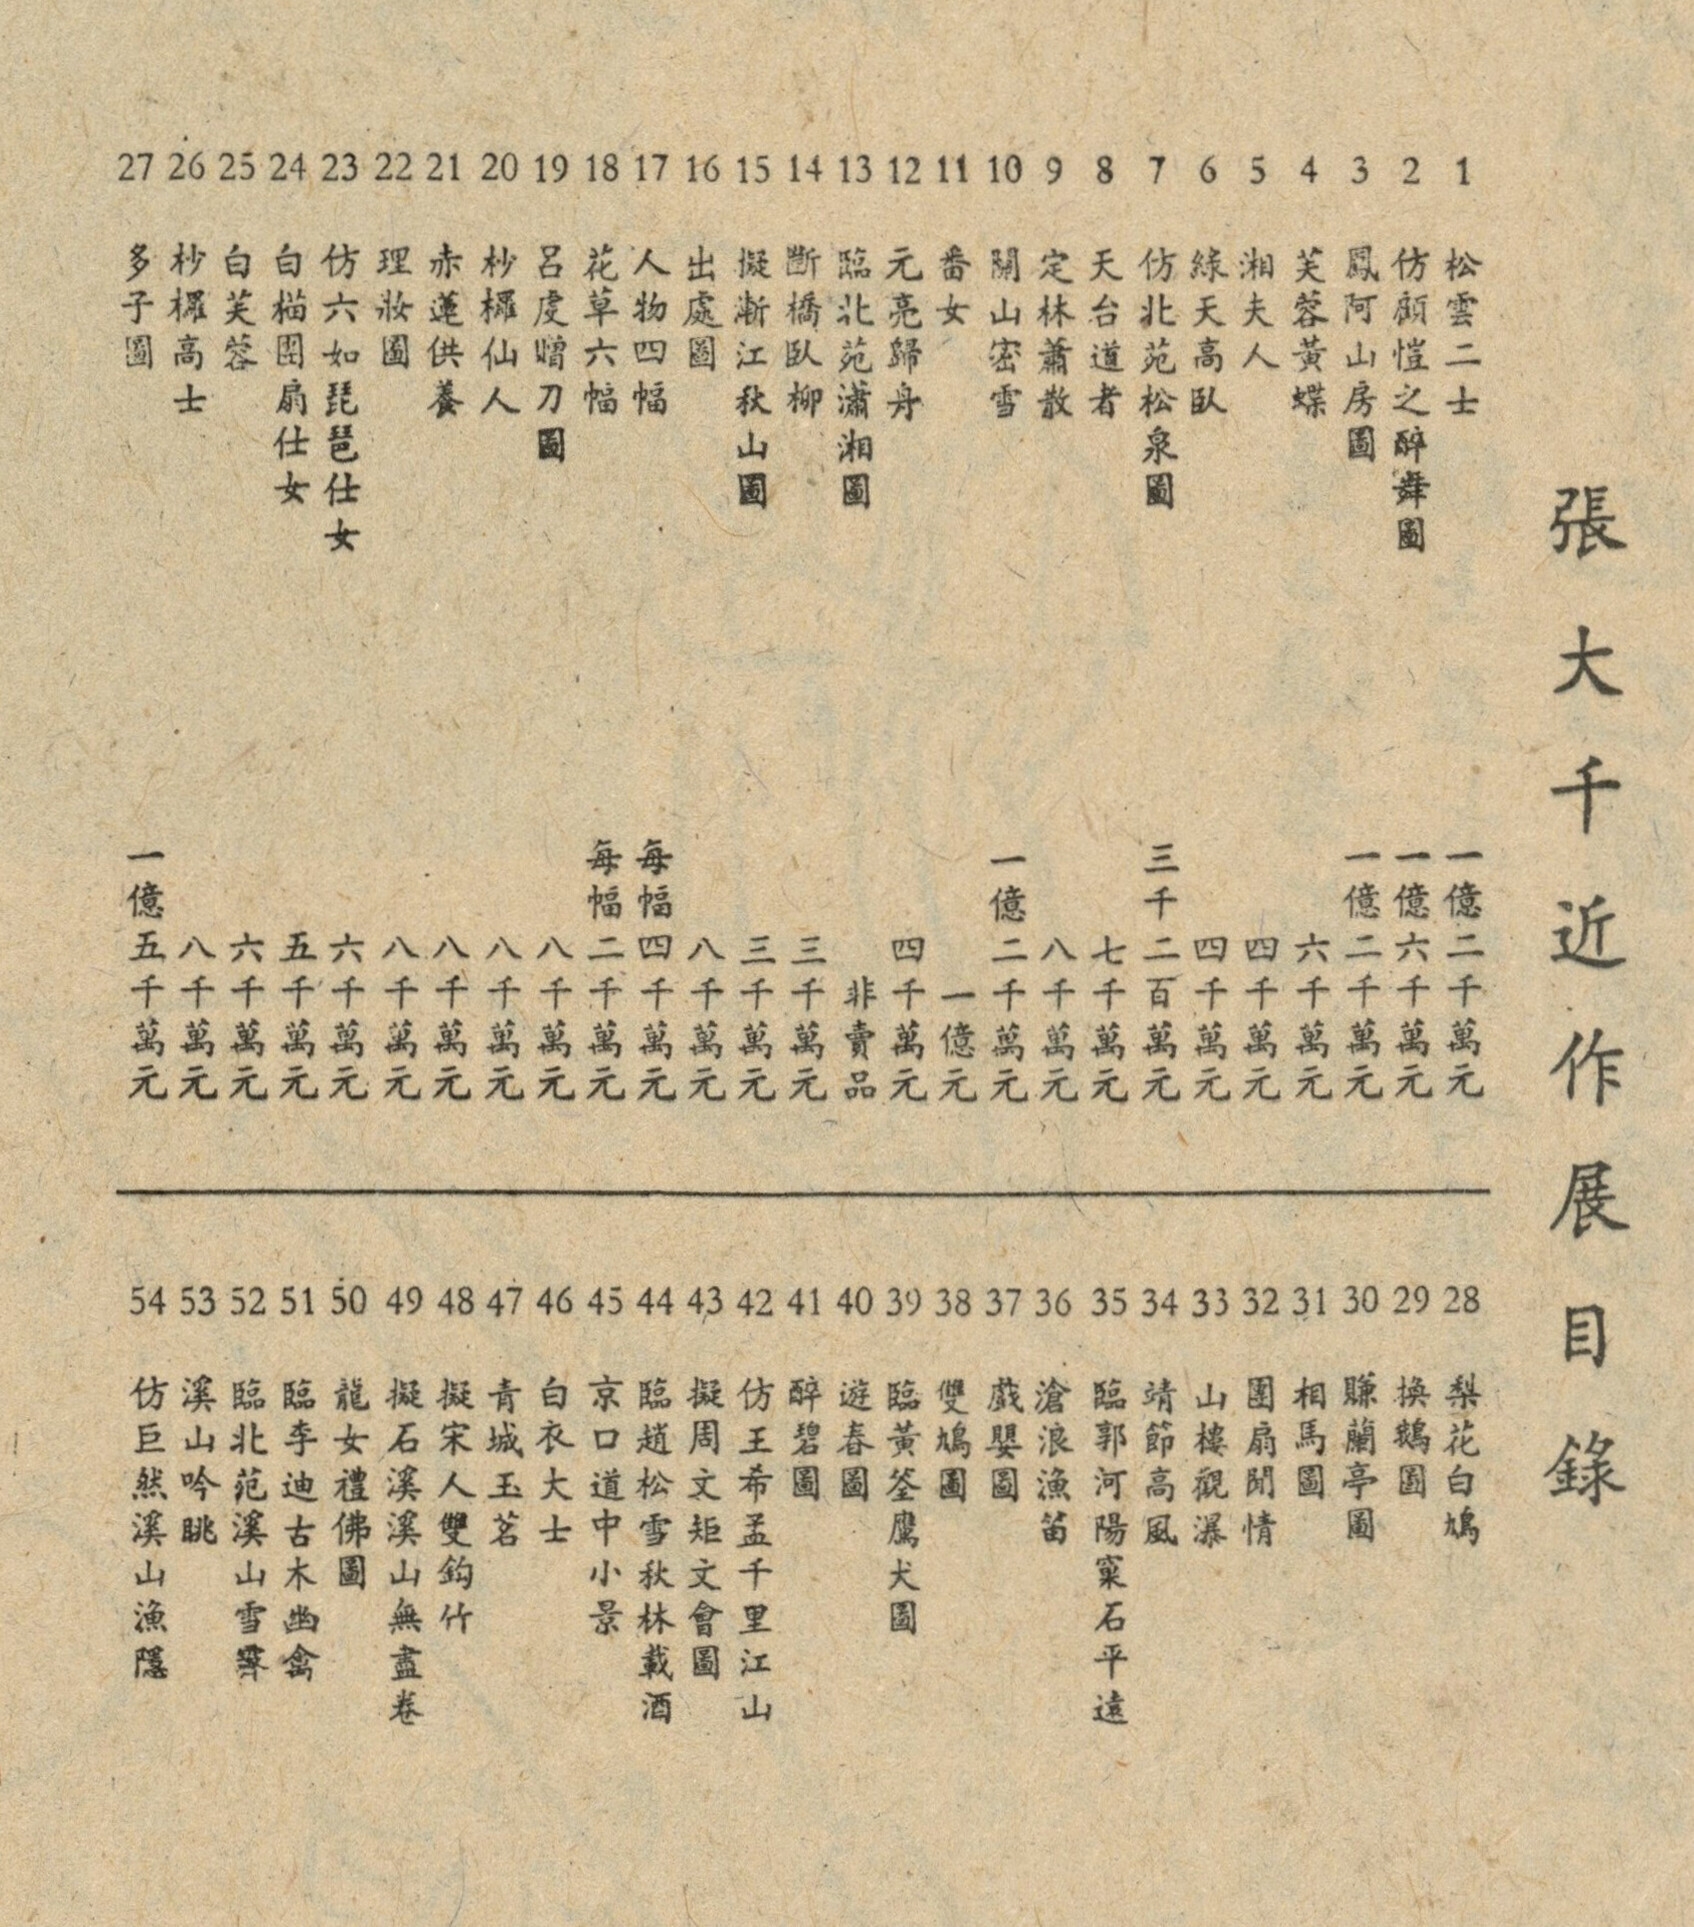 張大千近作展目錄
1 松雲二士 一億二千萬元
2 仿顧愷之醉舞圖 一億六千萬元
3 鳳阿山房圖 一億二千萬元
4 芙蓉黃蝶 六千萬元
5 湘夫人 四千萬元
6 綠天高臥 四千萬元
7 仿北苑松泉圖 三千二百萬元
8 天台道者 七千萬元
9 定林蕭散 八千萬元
10 關山密雪 一億二千萬元
11 番女 一億元
12 元亮歸舟 四千萬元
13 臨北苑瀟湘圖 非賣品
14 斷橋臥柳 三千萬元
15 擬漸江秋山圖 三千萬元
16 出處圖 八千萬元
17 人物四幅 每幅四千萬元
18 花草六幅 每幅二千萬元
19 呂虔贈刀圖 八千萬元
20 杪欏仙人 八千萬元
21 赤蓮供養 八千萬元
22 理妝圖 八千萬元
23 仿六如琵琶仕女 六千萬元
24 白描團扇仕女 五千萬元
25 白芙蓉 六千萬元
26 杪欏高士 八千萬元
27 多子圖 一億五千萬元
28 梨花白鳩
29 換鵝圖
30 賺蘭亭圖
31 相馬圖
32 團扇閒情
33 山樓觀瀑
34 靖節高風
35 臨郭河陽窠石平遠
36 滄浪漁笛
37 戲嬰圖
38 雙鳩圖
39 臨黃筌鷹犬圖
40 遊春圖
41 醉碧圖
42 仿王希孟千里江山
43 擬周文矩文會圖
44 臨趙松雪秋林載酒
45 京口道中小景
46 白衣大士
47 青城玉茗
48 擬宋人雙鈎竹
49 擬石溪溪山無盡卷
50 龍女禮佛圖
51 臨李迪古木幽禽
52 臨北范溪山雪霽
53 溪山吟眺
54 仿巨然溪山漁隱